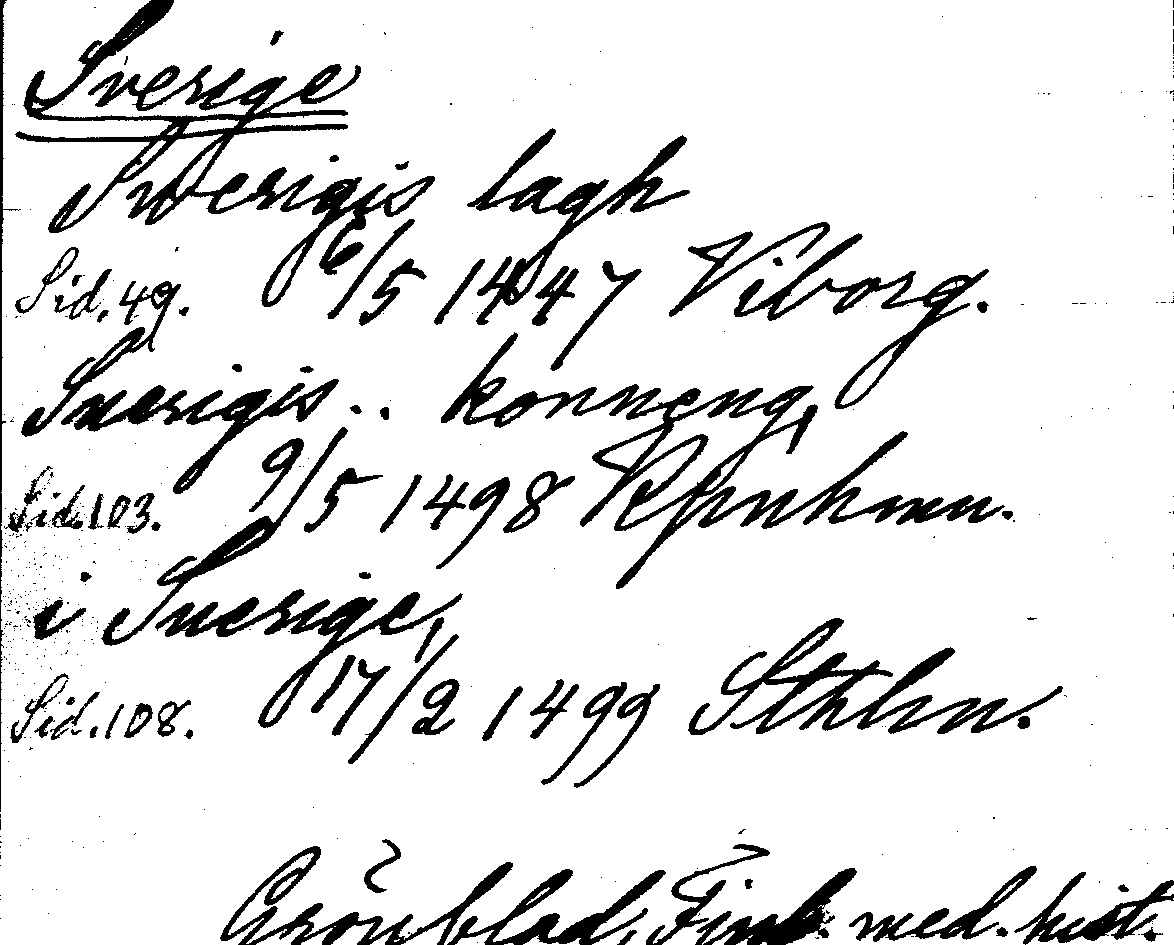 Sverige
Swerigis lagh
Sid. 49. 6/5 1447 Viborg.
Suerigis .. konneng,
Sid. 103. 9/5 1498 Kpnhmn.
i Suerige,
Sid. 108. 17/2 1499 Sthlm.
Grönblad, Finl. med. hist.